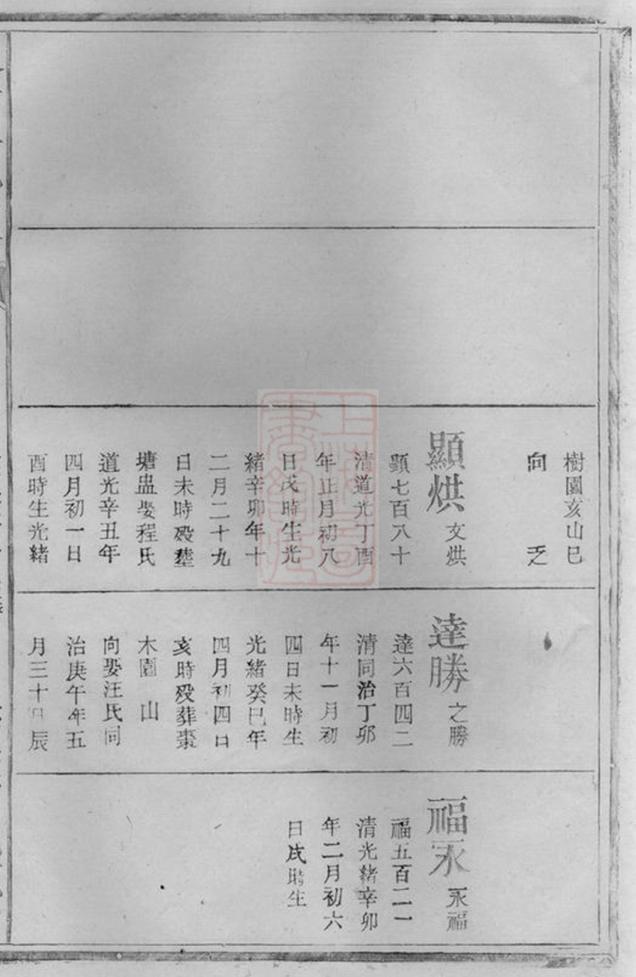 樹園亥山巳
向 乏
顯烘 文烘
顯七百八十
清道光丁酉
年正月初八
日戌時生光
緒辛卯年十
二月二十九
日未時歿塟
塘盅娶程氏
道光辛丑年
四月初一日
酉時生光緒
達勝 之勝
達六百四二
清同治丁卯
年十一月初
四日未時生
光緒癸巳年
四月初四日
亥時歿葬棗
木園 山
向娶汪氏同
治庚午年五
月三十日辰
福永 永福
福五百二一
清光緒辛卯
年二月初六
日戌時生